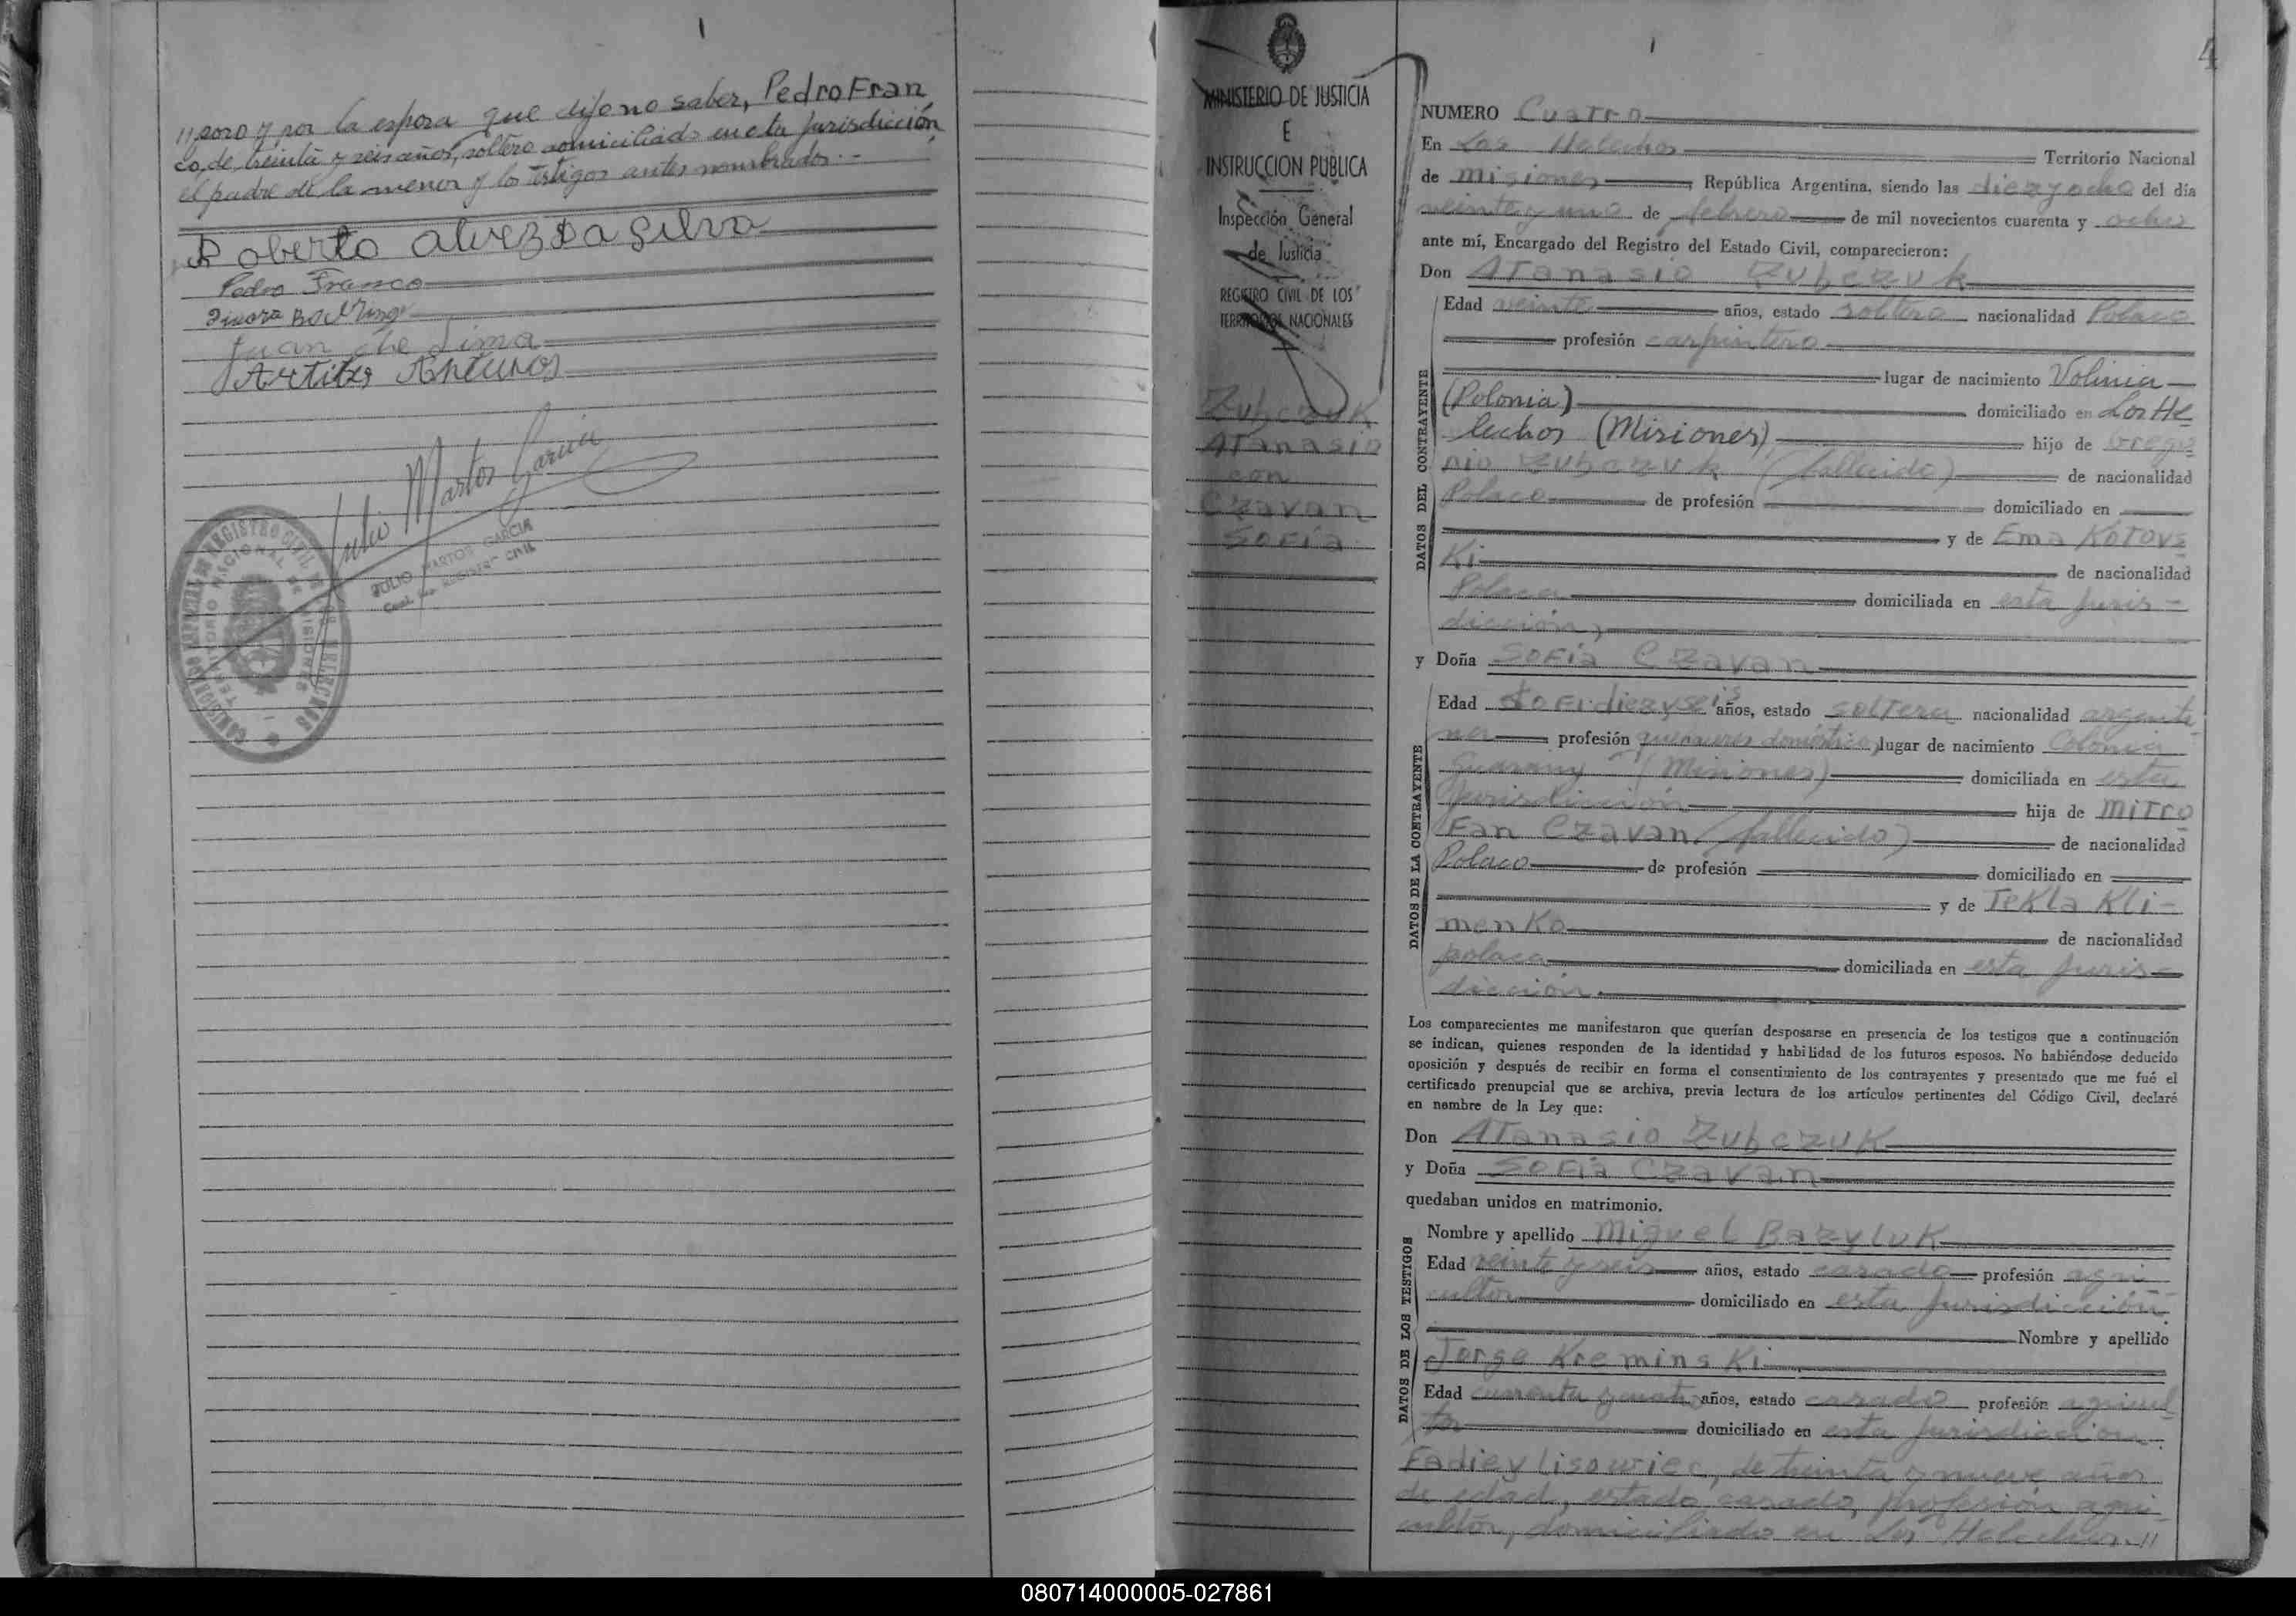 //poso y por la esposa que dijo no saber, Pedro Fran
co, de treinta y seis años, soltero domiciliado en esta jurisdicción,
el padre de la menor y los testigos antes nombrados.-
Roberto alvez Da Silva
Pedro Franco
Juan de Lima
Antunes
Julio Martos Garcia
JULIO MARTOS GARCIA
MINISTERIO DE JUSTICIA
E
INSTRUCCION PUBLICA
Inspección General
de Justicia
REGISTRO CIVIL DE LOS
TERRITORIOS NACIONALES
Zubczuk
Atanasio
con
Czavan
Sofía
4
NUMERO Cuatro
En Los Helechos Territorio Nacional
de Misiones, República Argentina, siendo las diez y ocho del día
veinte y uno de febrero de mil novecientos cuarenta y ocho
ante mí, Encargado del Registro del Estado Civil, comparecieron:
Don Atanasio Zubczuk
DATOS DEL CONTRAYENTE
Edad veinte años, estado soltero nacionalidad Polaco
profesión carpintero
lugar de nacimiento Volinia
(Polonia) domiciliado en Los He
lechos (Misiones) hijo de Grego
nio Zubczuk (fallecido) de nacionalidad
Polaco de profesión domiciliado en
y de Ema Kotovs
Ki de nacionalidad
Polaca domiciliada en esta juris-
dicción,
y Doña Sofía Czavan
DATOS DE LA CONTRAYENTE
Edad diez y seis años, estado soltera nacionalidad argenti
na profesión quehaceres domésticos, lugar de nacimiento Colonia
Guarany (Misiones) domiciliada en esta
jurisdicción hija de Mitro
Fan Czavan (fallecido) de nacionalidad
Polaco de profesión domiciliado en
y de Tekla Kli-
menko de nacionalidad
polaca domiciliada en esta juris-
dicción.
Los comparecientes me manifestaron que querían desposarse en presencia de los testigos que a continuación
se indican, quienes responden de la identidad y habilidad de los futuros esposos. No habiéndose deducido
oposición y después de recibir en forma el consentimiento de los contrayentes y presentado que me fué el
certificado prenupcial que se archiva, previa lectura de los artículos pertinentes del Código Civil, declaré
en nombre de la Ley que:
Don Atanasio Zubczuk
y Doña Sofía Czavan
quedaban unidos en matrimonio.
DATOS DE LOS TESTIGOS
Nombre y apellido Miguel Bazyluk
Edad veinte y seis años, estado casado profesión agri
cultor domiciliado en esta jurisdicción
Nombre y apellido
Jorge Kreminski
Edad cuarenta y cuatro años, estado casado profesión agricul
tor domiciliado en esta jurisdicción.
Fadiey Lisowiec, de treinta y nueve años
de edad, estado casado, profesión agri-
cultor, domiciliado en Los Helechos.//
080714000005-027861